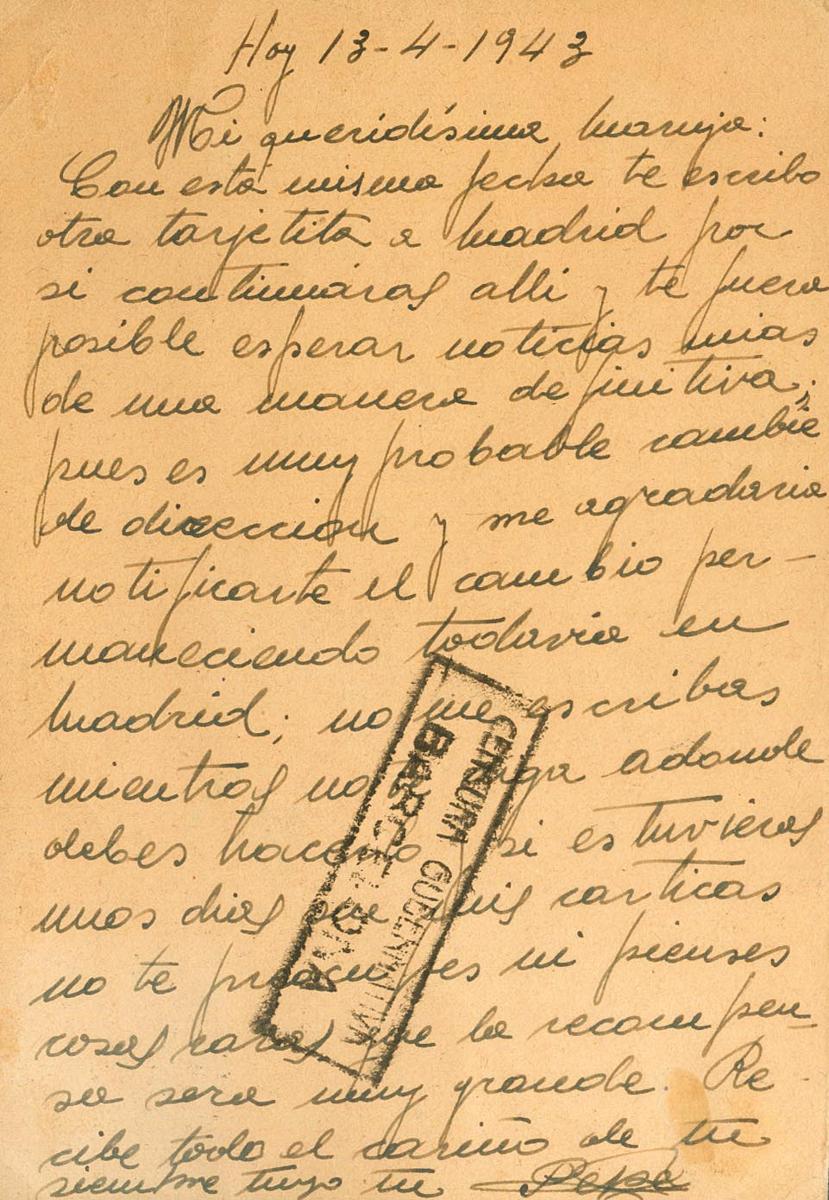 Hoy 13-4-1943
Mi queridísima Maruja:
Con esta misma fecha te escribo
otra tarjetita a Madrid por
si continuaras alli y te fuera
posible esperar noticias mias
de una manera definitiva;
pues es muy probable cambie
de direccion y me agradaria
notificarte el cambio per-
maneciendo todavia en
Madrid; no me escribas
mientras no te diga adonde
debes hacerlo y si estuvieras
unos dias sin mis carticas
no te preocupes ni pienses
cosas raras que la recompen-
sa sera muy grande. Re-
cibe todo el cariño de tu
siempre tuyo tu Pepe
CENSURA GUBERNATIVA
BARCELONA